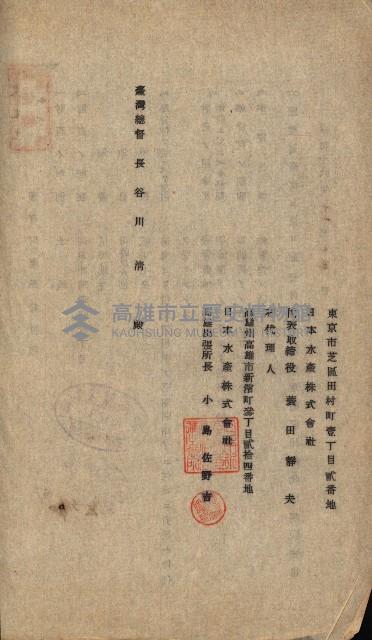 東京市芝區田村町壹丁目貳番地
日本水產株式會社
代表取締役 蓑田靜夫
右代理人
高雄州高雄市新濱町參丁目貳拾四番地
日本水產株式會社
高雄出張所長 小島佐野吉
臺灣總督 長谷川清 殿
高雄市立歷史博物館
KAOHSIUNG MUSEUM OF HISTORY